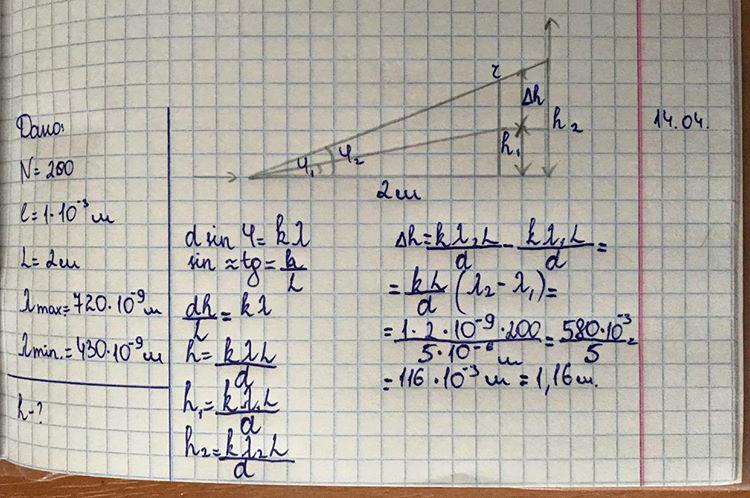 Дано:
N = 200
l = 1·10⁻³ м
L = 2 м
λmax = 720·10⁻⁹ м
λmin. = 430·10⁻⁹ м
h - ?
φ₁ φ₂
2 м
r
Δh
h₁
h₂
14.04.
d sin φ = kλ
sin ≈ tg = h/L
dh/L = kλ
h = kλL/d
h₁ = kλ₁L/d
h₂ = kλ₂L/d
Δh = kλ₂L/d - kλ₁L/d =
= kL/d (λ₂ - λ₁) =
= 1·2·10⁻⁹·200/5·10⁻⁶ м = 580·10⁻³/5 =
= 116·10⁻³ м = 1,16 м.